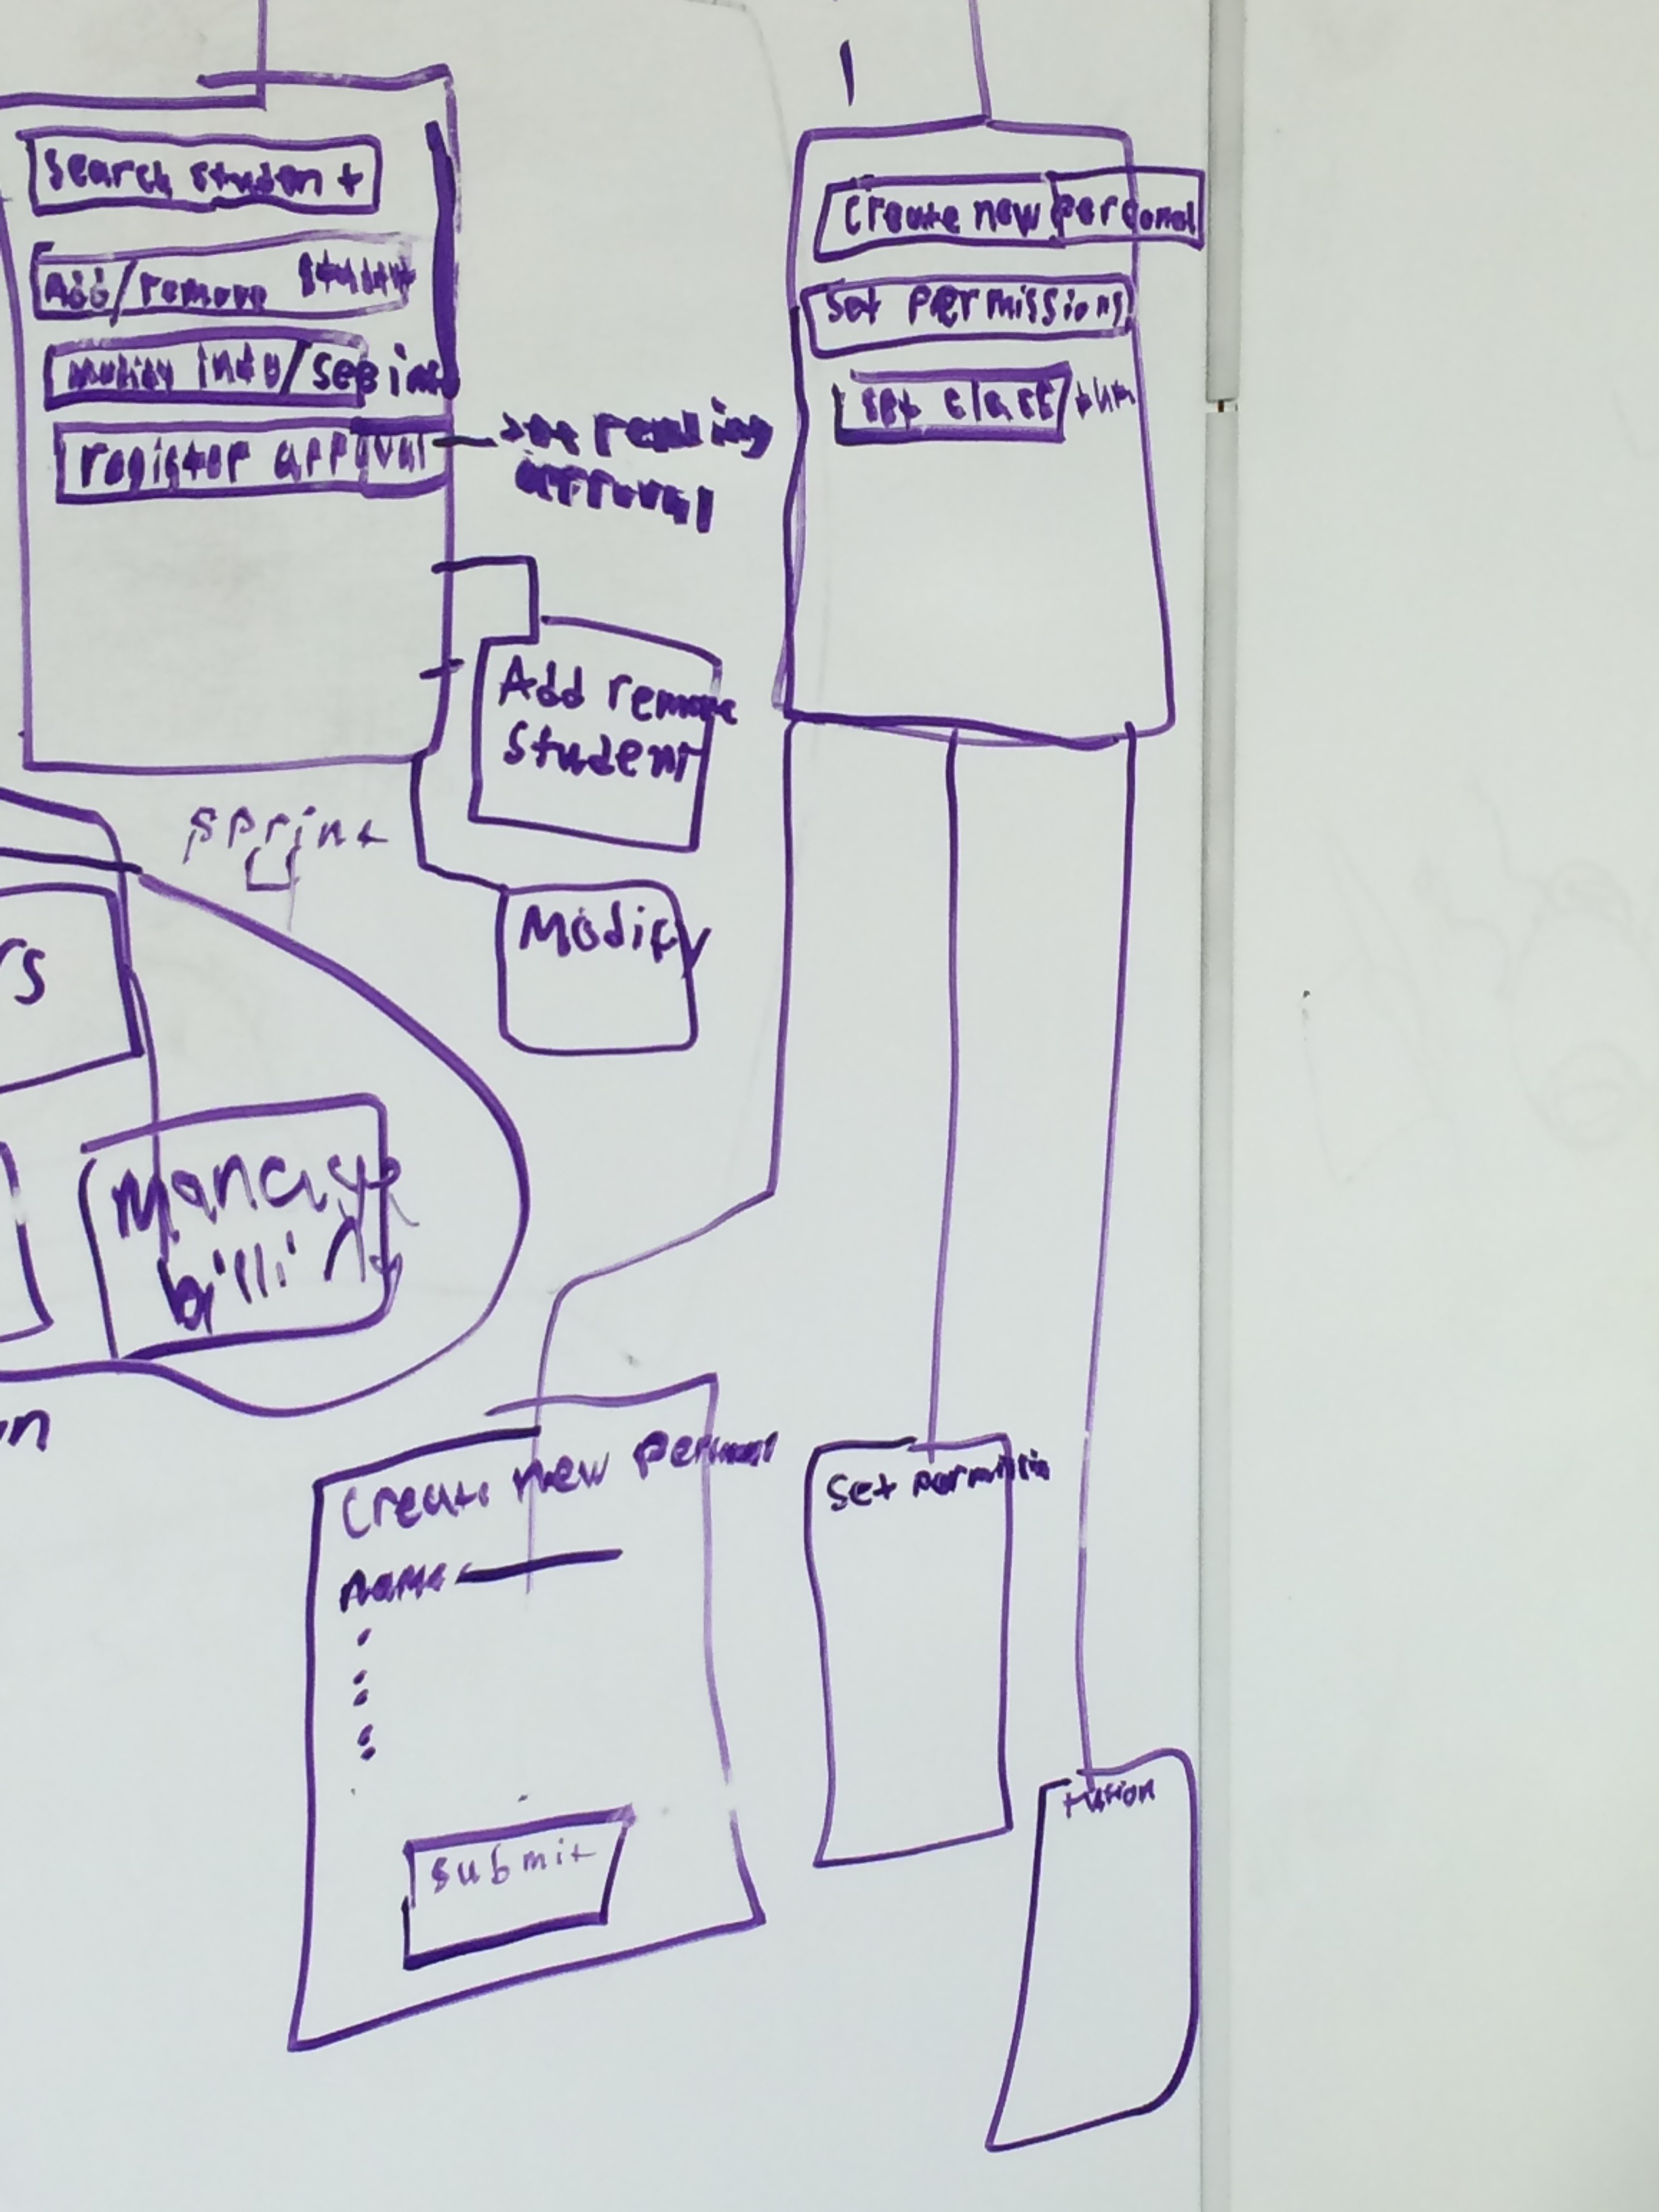 Search student
Add/remove student
modify info/see info
register approval
pending
approval
Add remove
Student
sprint
Modify
rs
Manage
billing
Create new personal
set permissions
set class/
Create new personal
name
submit
Set permission